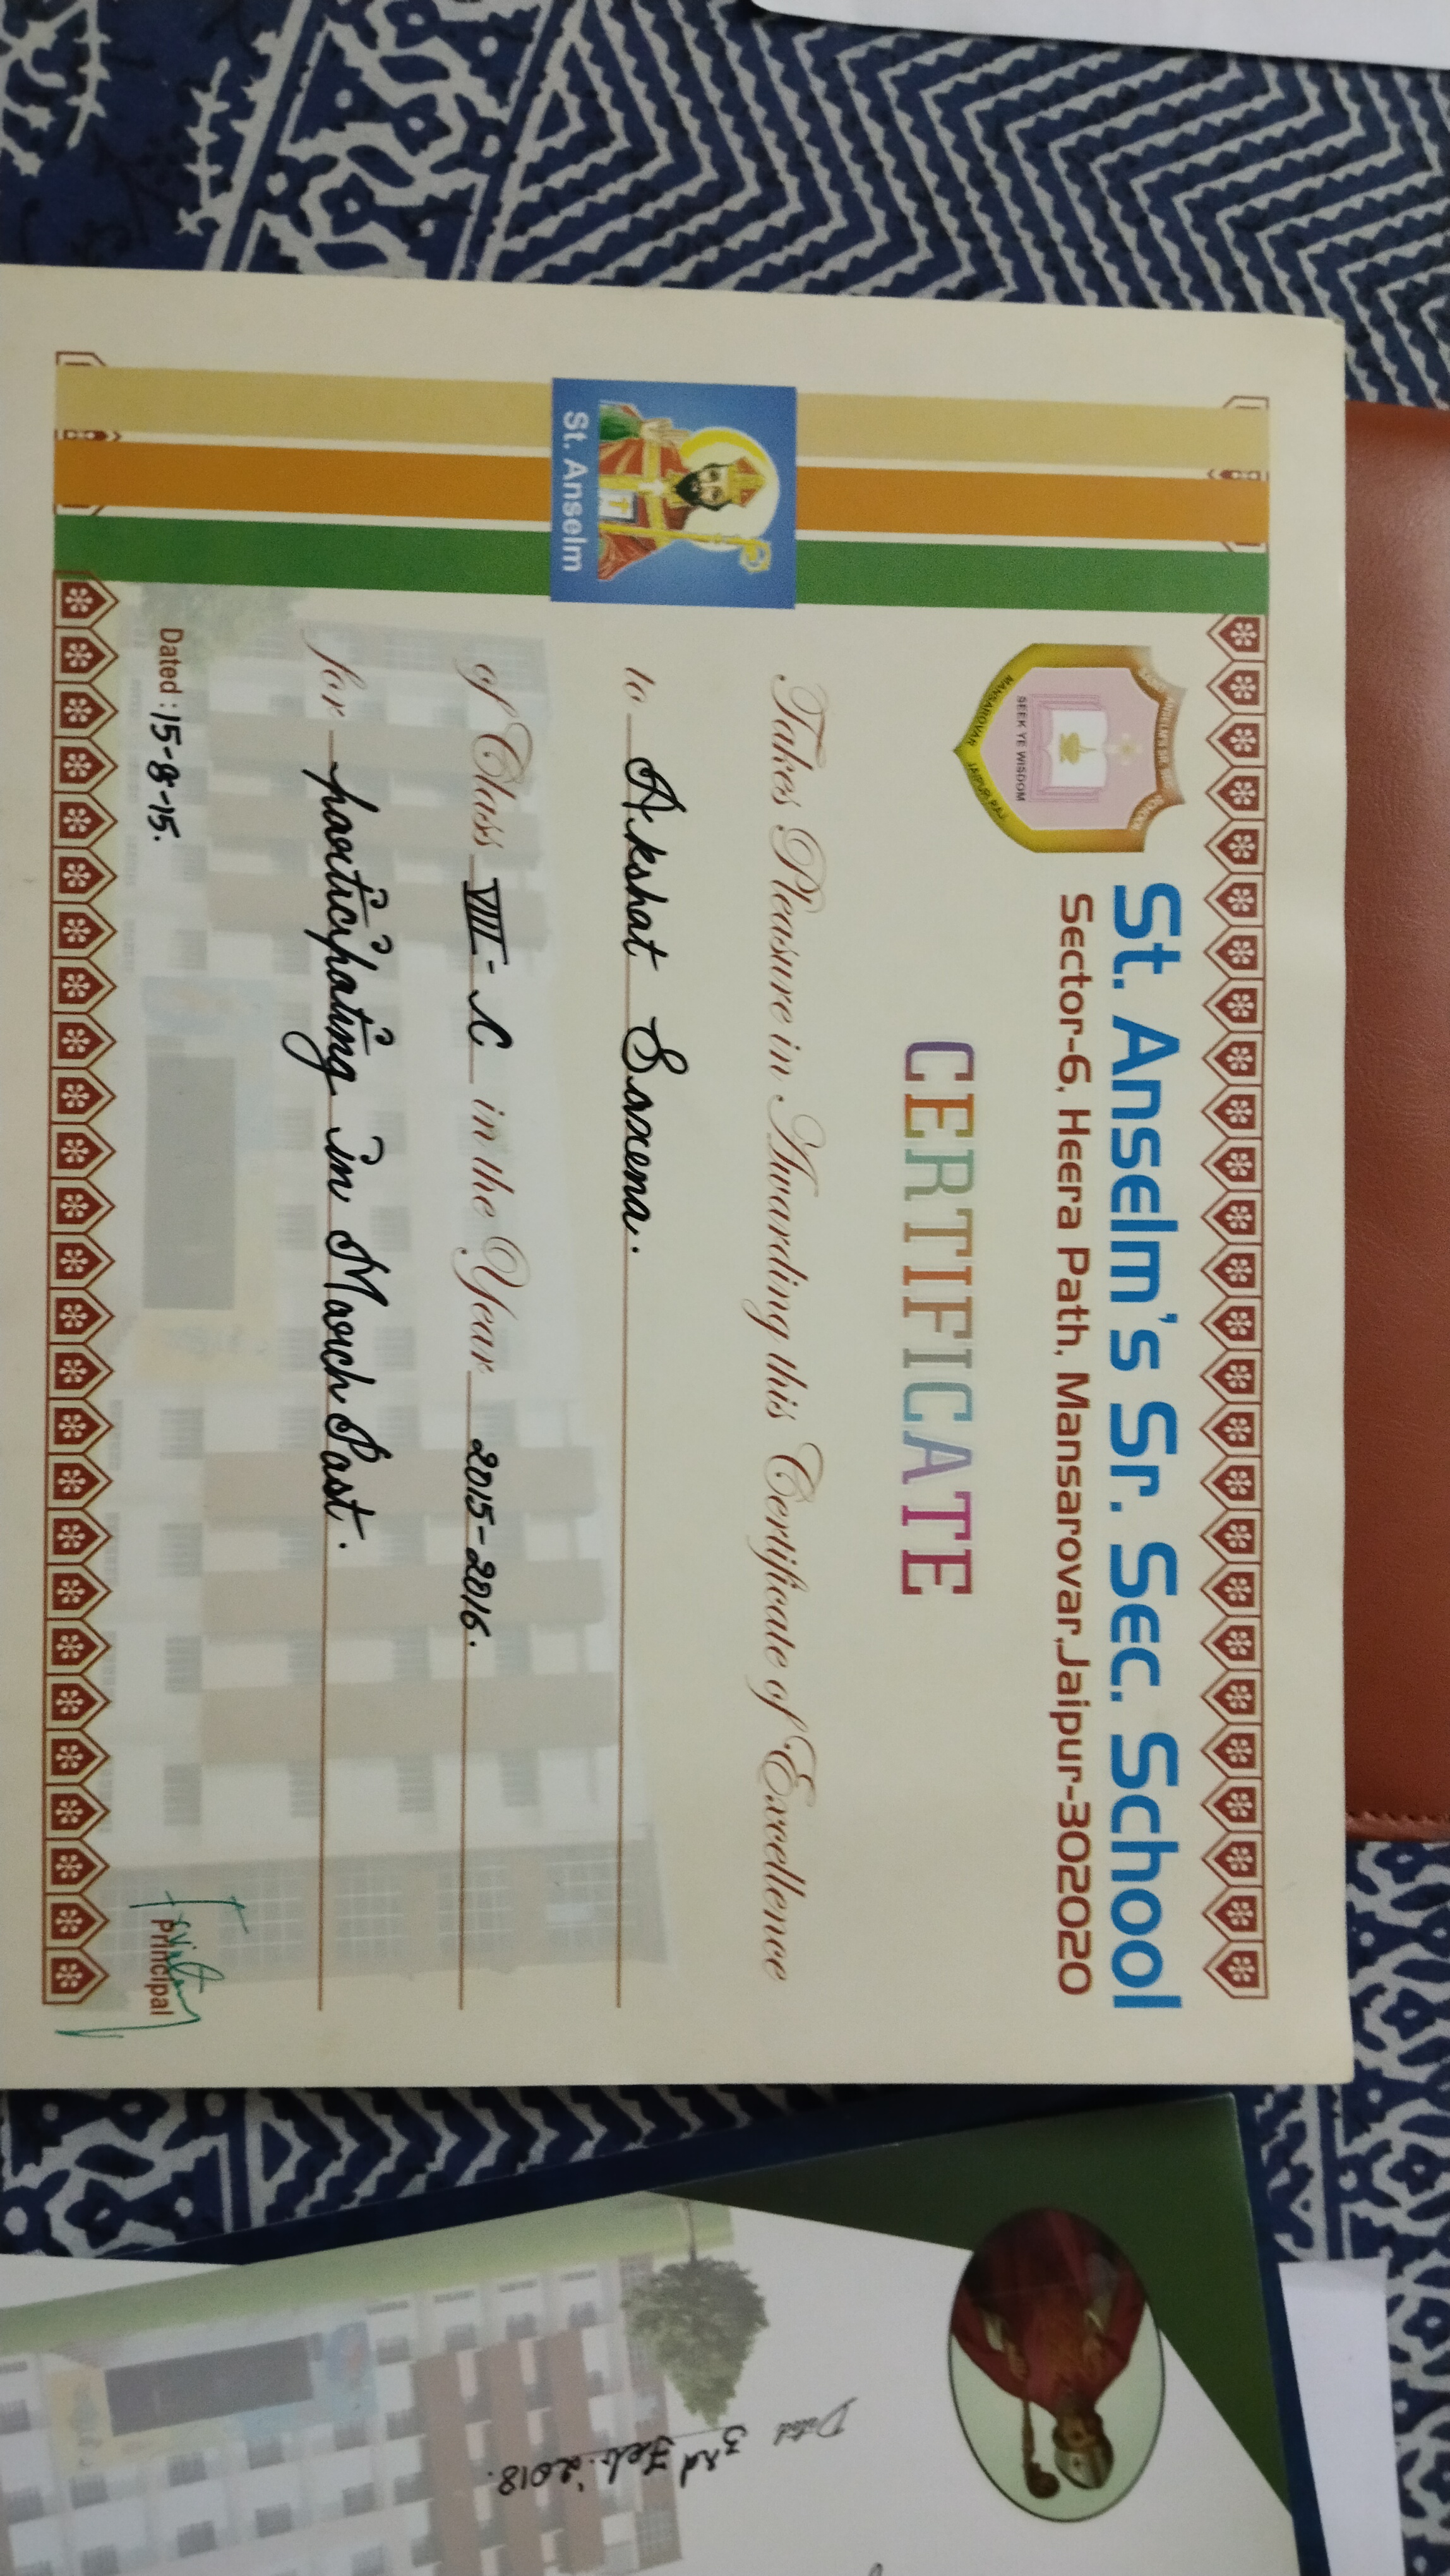 SAINT ANSELM'S SR. SEC. SCHOOL
SEEK YE WISDOM
MANSAROVAR JAIPUR RAJ.
St. Anselm's Sr. Sec. School
Sector-6, Heera Path, Mansarovar,Jaipur-302020
CERTIFICATE
Takes Pleasure in Awarding this Certificate of Excellence
to Akshat Saxena.
St. Anselm
of Class VIII-C in the Year 2015-2016.
for participating in March Past.
Dated : 15-8-15.
Principal
Dated 3rd Feb.'2018.